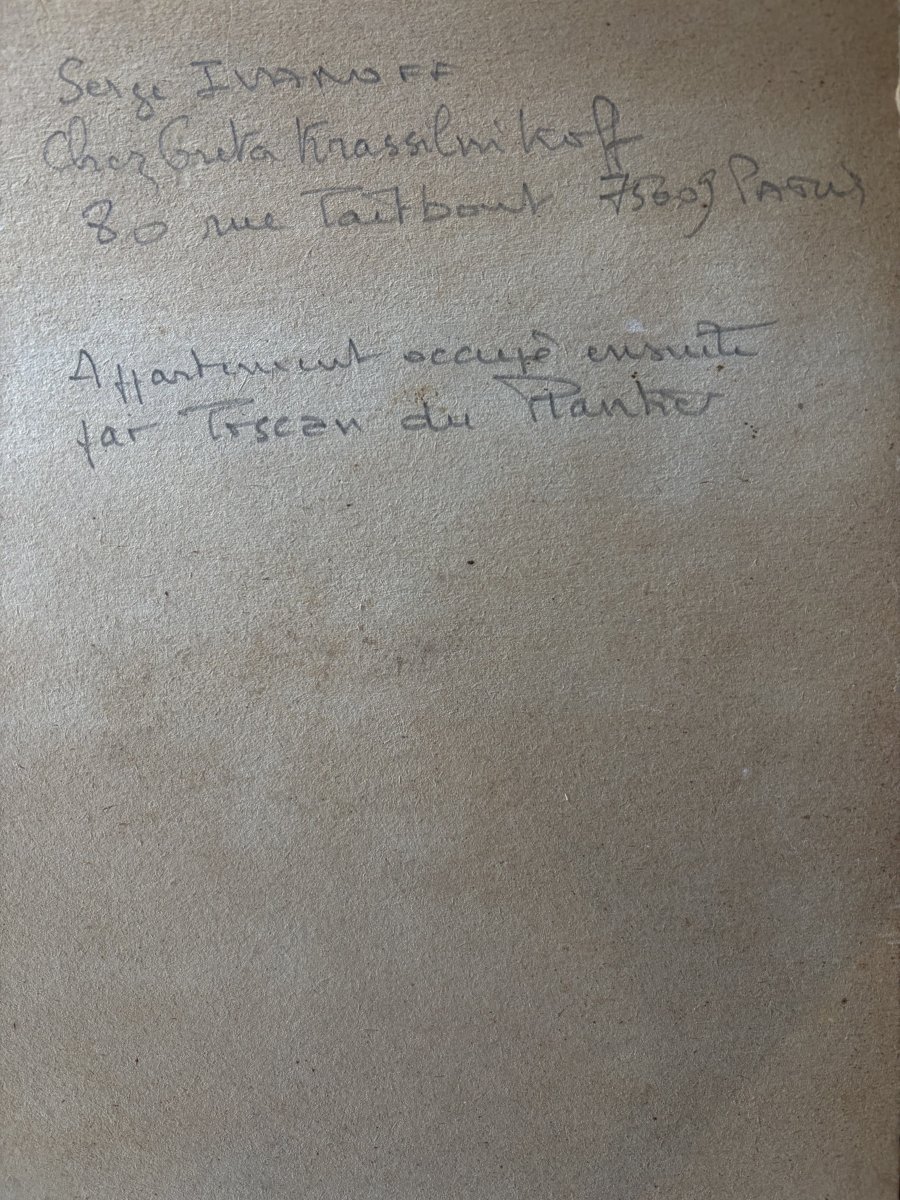 Serge IVANOFF
Chez Greta Krassilnikoff
80 rue Taitbout 75009 PARIS
Appartement occupé ensuite
par Tristan du Plantier